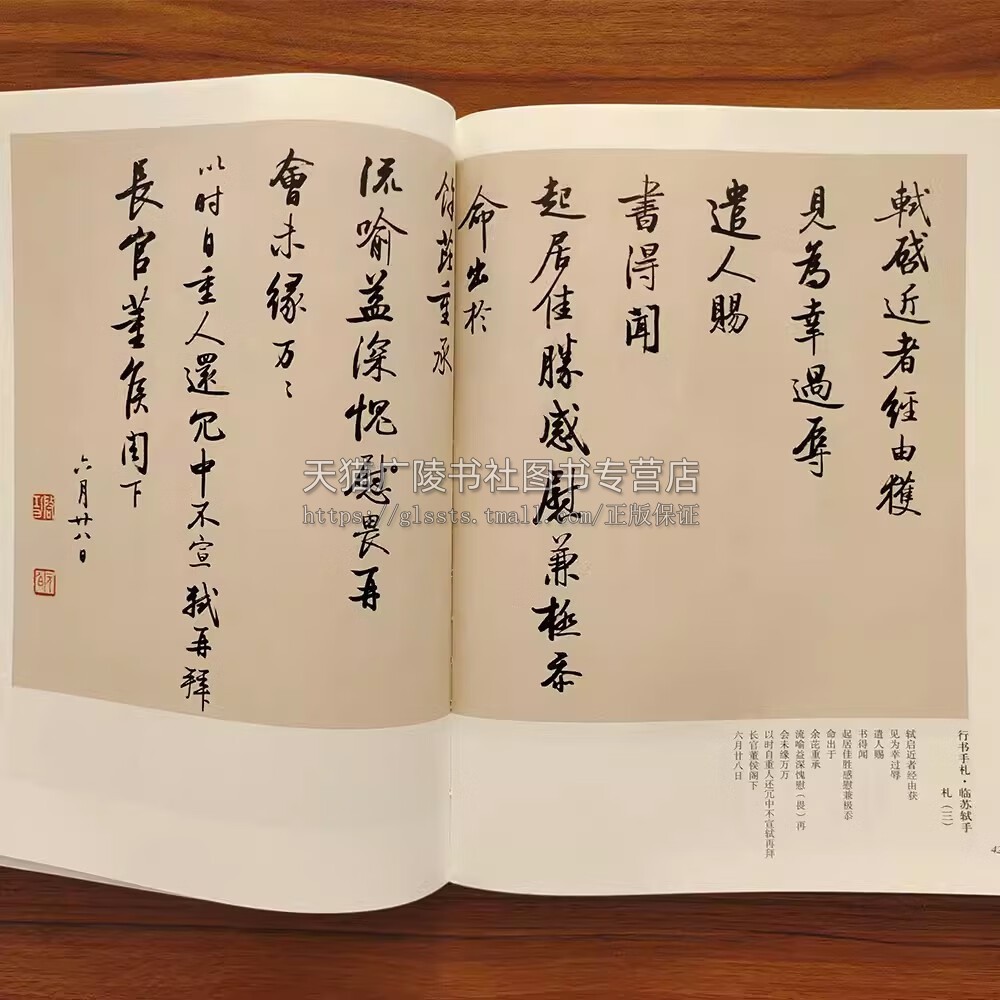 軾啓近者經由獲
見為幸過辱
遣人賜
書得聞
起居佳勝感慰兼極忝
命出於
餘芘重承
流喻益深愧慰畏再
會未緣万〻
以时自重人還冗中不宣軾再拜
長官董侯阁下
六月廿八日
行书手札·临苏轼手
札（三）
轼启近者经由获
见为幸过辱
遣人赐
书得闻
起居佳胜感慰兼极忝
命出于
余芘重承
流喻益深愧慰（畏）再
会未缘万万
以时自重人还冗中不宣轼再拜
长官董侯阁下
六月廿八日
天猫广陵书社图书专营店
https://glssts.tmall.com/正版保证